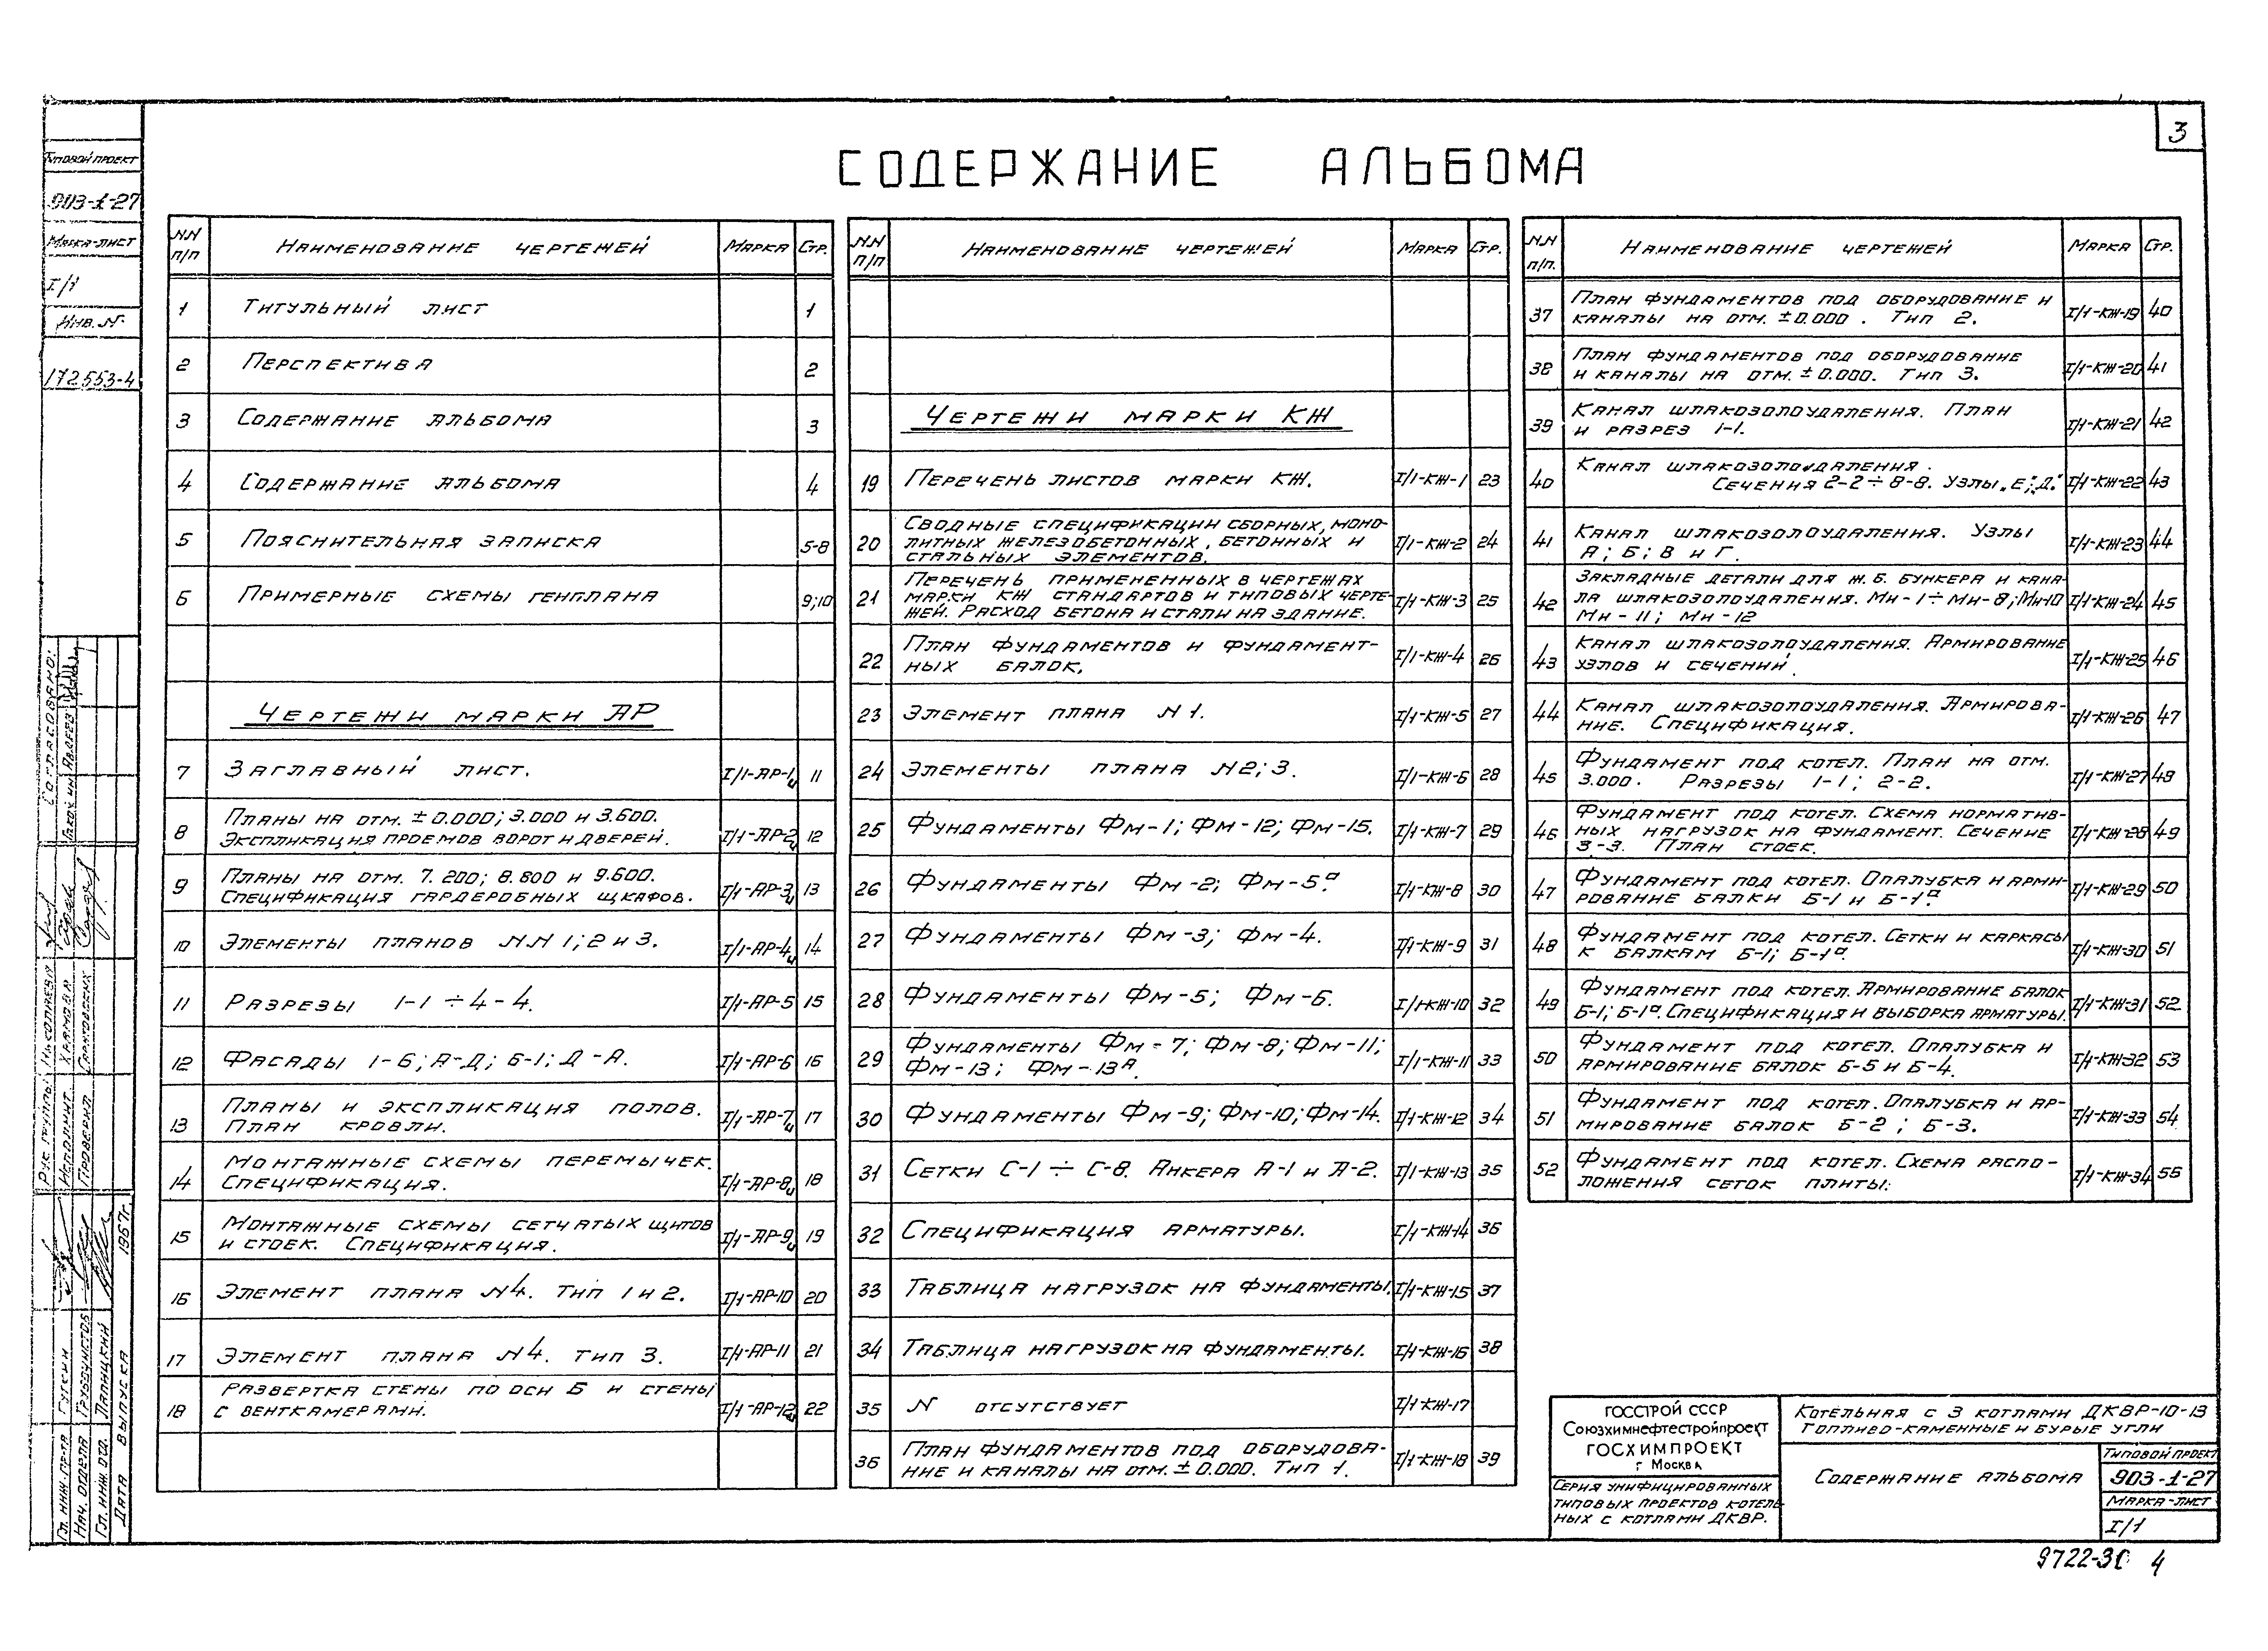 3
СОДЕРЖАНИЕ АЛЬБОМА
Типовой проект
903-1-27
Марка-лист
I/1
Инв. №
172553-4
NN п/п Наименование чертежей Марка Стр.
1 Титульный лист 1
2 Перспектива 2
3 Содержание альбома 3
4 Содержание альбома 4
5 Пояснительная записка 5-8
6 Примерные схемы генплана 9;10
Чертежи марки АР
7 Заглавный лист. I/1-АР-1и 11
8 Планы на отм. ±0.000; 3.000 и 3.600.
Экспликация проемов ворот и дверей. I/1-АР-2и 12
9 Планы на отм. 7.200; 8.800 и 9.600.
Спецификация гардеробных шкафов. I/1-АР-3и 13
10 Элементы планов NN 1; 2 и 3. I/1-АР-4и 14
11 Разрезы 1-1 ÷ 4-4. I/1-АР-5 15
12 Фасады 1-6; А-Д; 6-1; Д-А. I/1-АР-6 16
13 Планы и экспликация полов.
План кровли. I/1-АР-7и 17
14 Монтажные схемы перемычек.
Спецификация. I/1-АР-8и 18
15 Монтажные схемы сетчатых щитов
и стоек. Спецификация. I/1-АР-9и 19
16 Элемент плана N4. Тип 1 и 2. I/1-АР-10 20
17 Элемент плана N4. Тип 3. I/1-АР-11 21
18 Развертка стены по оси Б и стены
с венткамерами. I/1-АР-12и 22
N.N п/п Наименование чертежей Марка Стр.
Чертежи марки КЖ
19 Перечень листов марки КЖ. I/1-КЖ-1 23
20 Сводные спецификации сборных, моно-
литных железобетонных, бетонных и
стальных элементов. I/1-КЖ-2 24
21 Перечень примененных в чертежах
марки КЖ стандартов и типовых черте-
жей. Расход бетона и стали на здание. I/1-КЖ-3 25
22 План фундаментов и фундамент-
ных балок. I/1-КЖ-4 26
23 Элемент плана N1. I/1-КЖ-5 27
24 Элементы плана N2; 3. I/1-КЖ-6 28
25 Фундаменты Фм-1; Фм-12; Фм-15. I/1-КЖ-7 29
26 Фундаменты Фм-2; Фм-5а. I/1-КЖ-8 30
27 Фундаменты Фм-3; Фм-4. I/1-КЖ-9 31
28 Фундаменты Фм-5; Фм-6. I/1-КЖ-10 32
29 Фундаменты Фм-7; Фм-8; Фм-11;
Фм-13; Фм-13а. I/1-КЖ-11 33
30 Фундаменты Фм-9; Фм-10; Фм-14. I/1-КЖ-12 34
31 Сетки С-1 ÷ С-8. Анкера А-1 и А-2. I/1-КЖ-13 35
32 Спецификация арматуры. I/1-КЖ-14 36
33 Таблица нагрузок на фундаменты. I/1-КЖ-15 37
34 Таблица нагрузок на фундаменты. I/1-КЖ-16 38
35 N отсутствует I/1-КЖ-17
36 План фундаментов под оборудова-
ние и каналы на отм. ±0.000. Тип 1. I/1-КЖ-18 39
N.N п/п. Наименование чертежей Марка Стр.
37 План фундаментов под оборудование и
каналы на отм. ±0.000. Тип 2. I/1-КЖ-19 40
38 План фундаментов под оборудование
и каналы на отм. ±0.000. Тип 3. I/1-КЖ-20 41
39 Канал шлакозолоудаления. План
и разрез 1-1. I/1-КЖ-21 42
40 Канал шлакозолоудаления.
Сечения 2-2 ÷ 8-8. Узлы „Е"; „Д". I/1-КЖ-22 43
41 Канал шлакозолоудаления. Узлы
А; Б; В и Г. I/1-КЖ-23 44
42 Закладные детали для ж.б. бункера и кана-
ла шлакозолоудаления. Мн-1 ÷ Мн-8; Мн-10
Мн-11; Мн-12 I/1-КЖ-24 45
43 Канал шлакозолоудаления. Армирование
узлов и сечений. I/1-КЖ-25 46
44 Канал шлакозолоудаления. Армирова-
ние. Спецификация. I/1-КЖ-26 47
45 Фундамент под котел. План на отм.
3.000. Разрезы 1-1; 2-2. I/1-КЖ-27 48
46 Фундамент под котел. Схема норматив-
ных нагрузок на фундамент. Сечение
3-3. План стоек. I/1-КЖ-28 49
47 Фундамент под котел. Опалубка и арми-
рование балки Б-1 и Б-1а. I/1-КЖ-29 50
48 Фундамент под котел. Сетки и каркасы
к балкам Б-1; Б-1а. I/1-КЖ-30 51
49 Фундамент под котел. Армирование балок
Б-1; Б-1а. Спецификация и выборка арматуры. I/1-КЖ-31 52
50 Фундамент под котел. Опалубка и
армирование балок Б-5 и Б-4. I/1-КЖ-32 53
51 Фундамент под котел. Опалубка и ар-
мирование балок Б-2; Б-3. I/1-КЖ-33 54
52 Фундамент под котел. Схема распо-
ложения сеток плиты. I/1-КЖ-34 55
Согласовано:
Авдеев
Рук. группы Николаева
Исполнит. Храмова
Проверил
Гл. инж. пр-та Гускин
Нач. отдела
Гл. инж. отд. Лапицкий
Дата выпуска 1967г.
ГОССТРОЙ СССР
Союзхимнефтестройпроект
ГОСХИМПРОЕКТ
г Москва
Серия унифицированных
типовых проектов котель-
ных с котлами ДКВР.
Котельная с 3 котлами ДКВР-10-13
Топливо-каменные и бурые угли
Содержание альбома
Типовой проект
903-1-27
Марка-лист
I/1
4